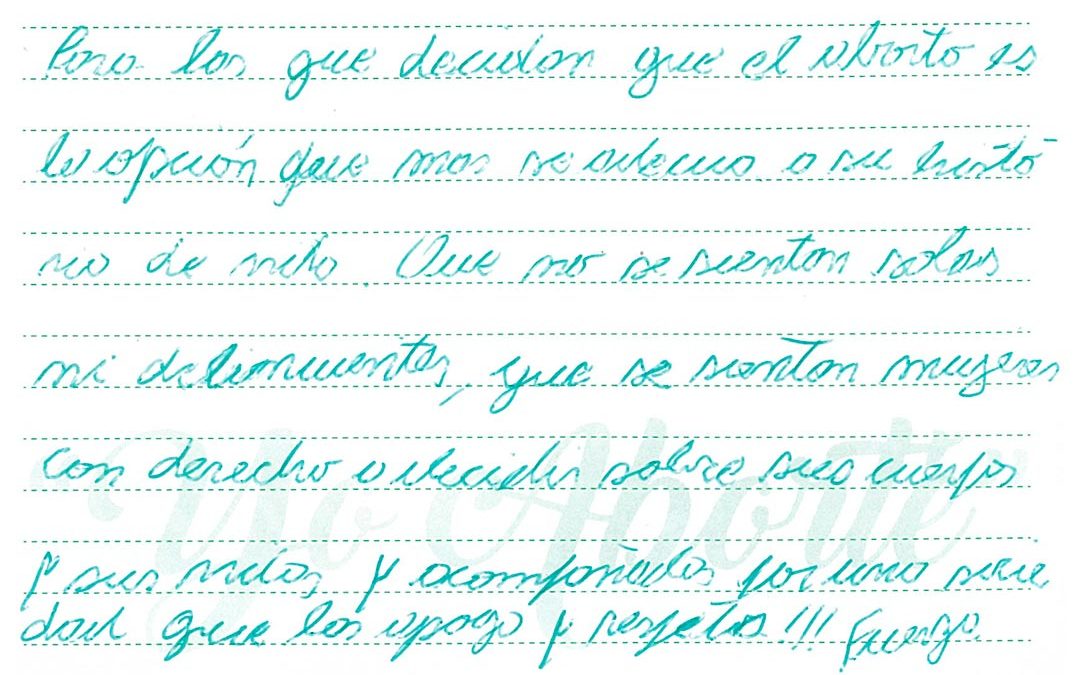 Para las que decidan que el aborto es
la opción que mas se adecua a su histo
ria de vida. Que no se sientan solas
ni delincuentes, que se sientan mujeres
con derecho a decidir sobre sus cuerpos
y sus vidas, y acompañadas por una socie
dad que las apoya y respeta!!! Fuerza
Yo Aborté